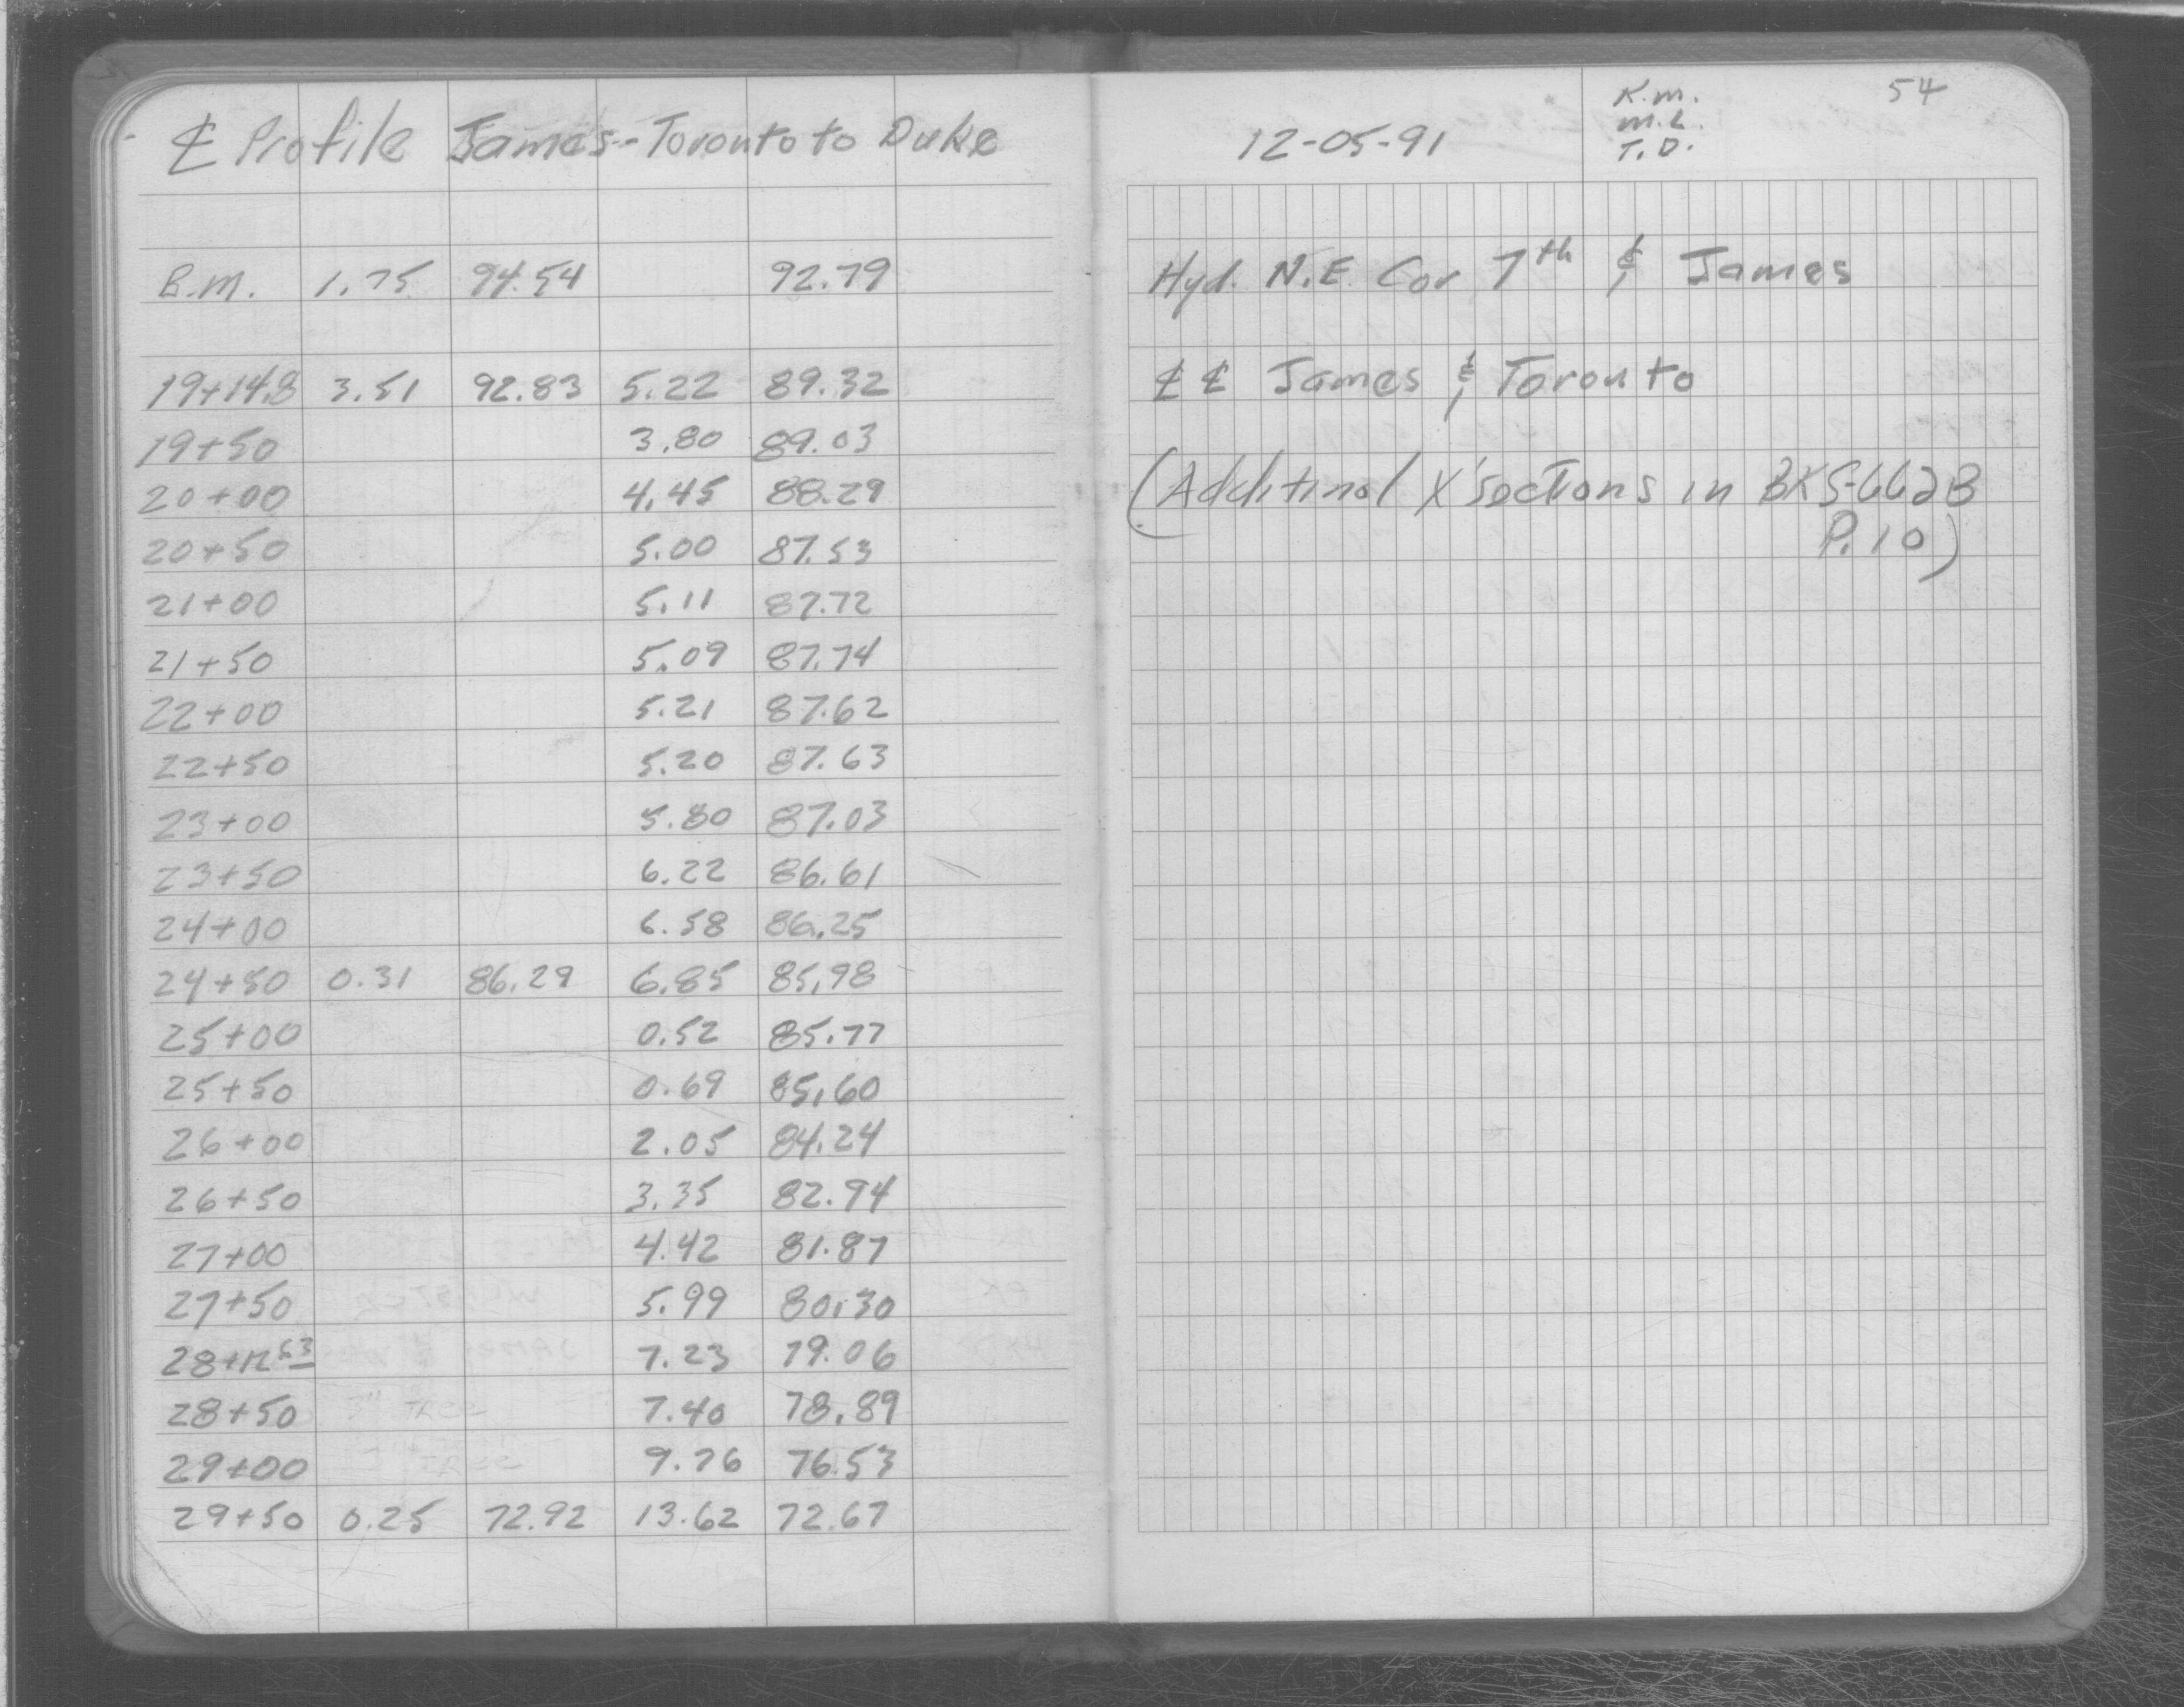 ℄ Profile James--Toronto to Duke
B.M. 1.75 94.54 92.79
19+14.8 3.51 92.83 5.22 89.32
19+50 3.80 89.03
20+00 4.45 88.29
20+50 5.00 87.53
21+00 5.11 87.72
21+50 5.09 87.74
22+00 5.21 87.62
22+50 5.20 87.63
23+00 5.80 87.03
23+50 6.22 86.61
24+00 6.58 86.25
24+50 0.31 86.29 6.85 85.98
25+00 0.52 85.77
25+50 0.69 85.60
26+00 2.05 84.24
26+50 3.35 82.94
27+00 4.42 81.87
27+50 5.99 80.30
7.23 79.06
28+50 7.40 78.89
29+00 9.76 76.53
29+50 0.25 72.92 13.62 72.67
54
12-05-91
K.M.
M.L.
T.D.
Hyd. N.E. Cor 7th & James
℄ ℄ James & Toronto
(Additinal X'sections in BK S-662B
P.10)